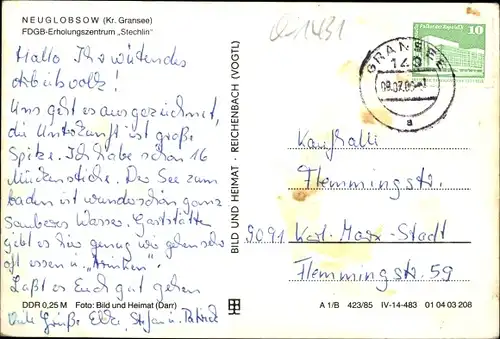 NEUGLOBSOW (Kr. Gransee)
FDGB-Erholungszentrum „Stechlin"
Hallo Ihr wütendes
Arbeitsvolk!
Uns geht es ausgezeichnet,
die Unterkunft ist große
Spitze. Ich habe schon 16
Mückenstiche. Der See zum
baden ist wunderschön ganz
sauberes Wasser. Gaststätten
gibt es hier genug wir gehen sehr
oft essen u.
Laßt es Euch gut gehen
Viele Grüße Elke, Stefan u. Patrick
DDR 0,25 M Foto: Bild und Heimat (Darr)
BILD UND HEIMAT · REICHENBACH (VOGTL)
Q-1431
Palast der Republik
10
GRANSEE
143
a
Kaufhalli
Flemmingstr.
9091 Karl-Marx-Stadt
Flemmingstr. 59
A 1/B 423/85 IV-14-483 01 04 03 208